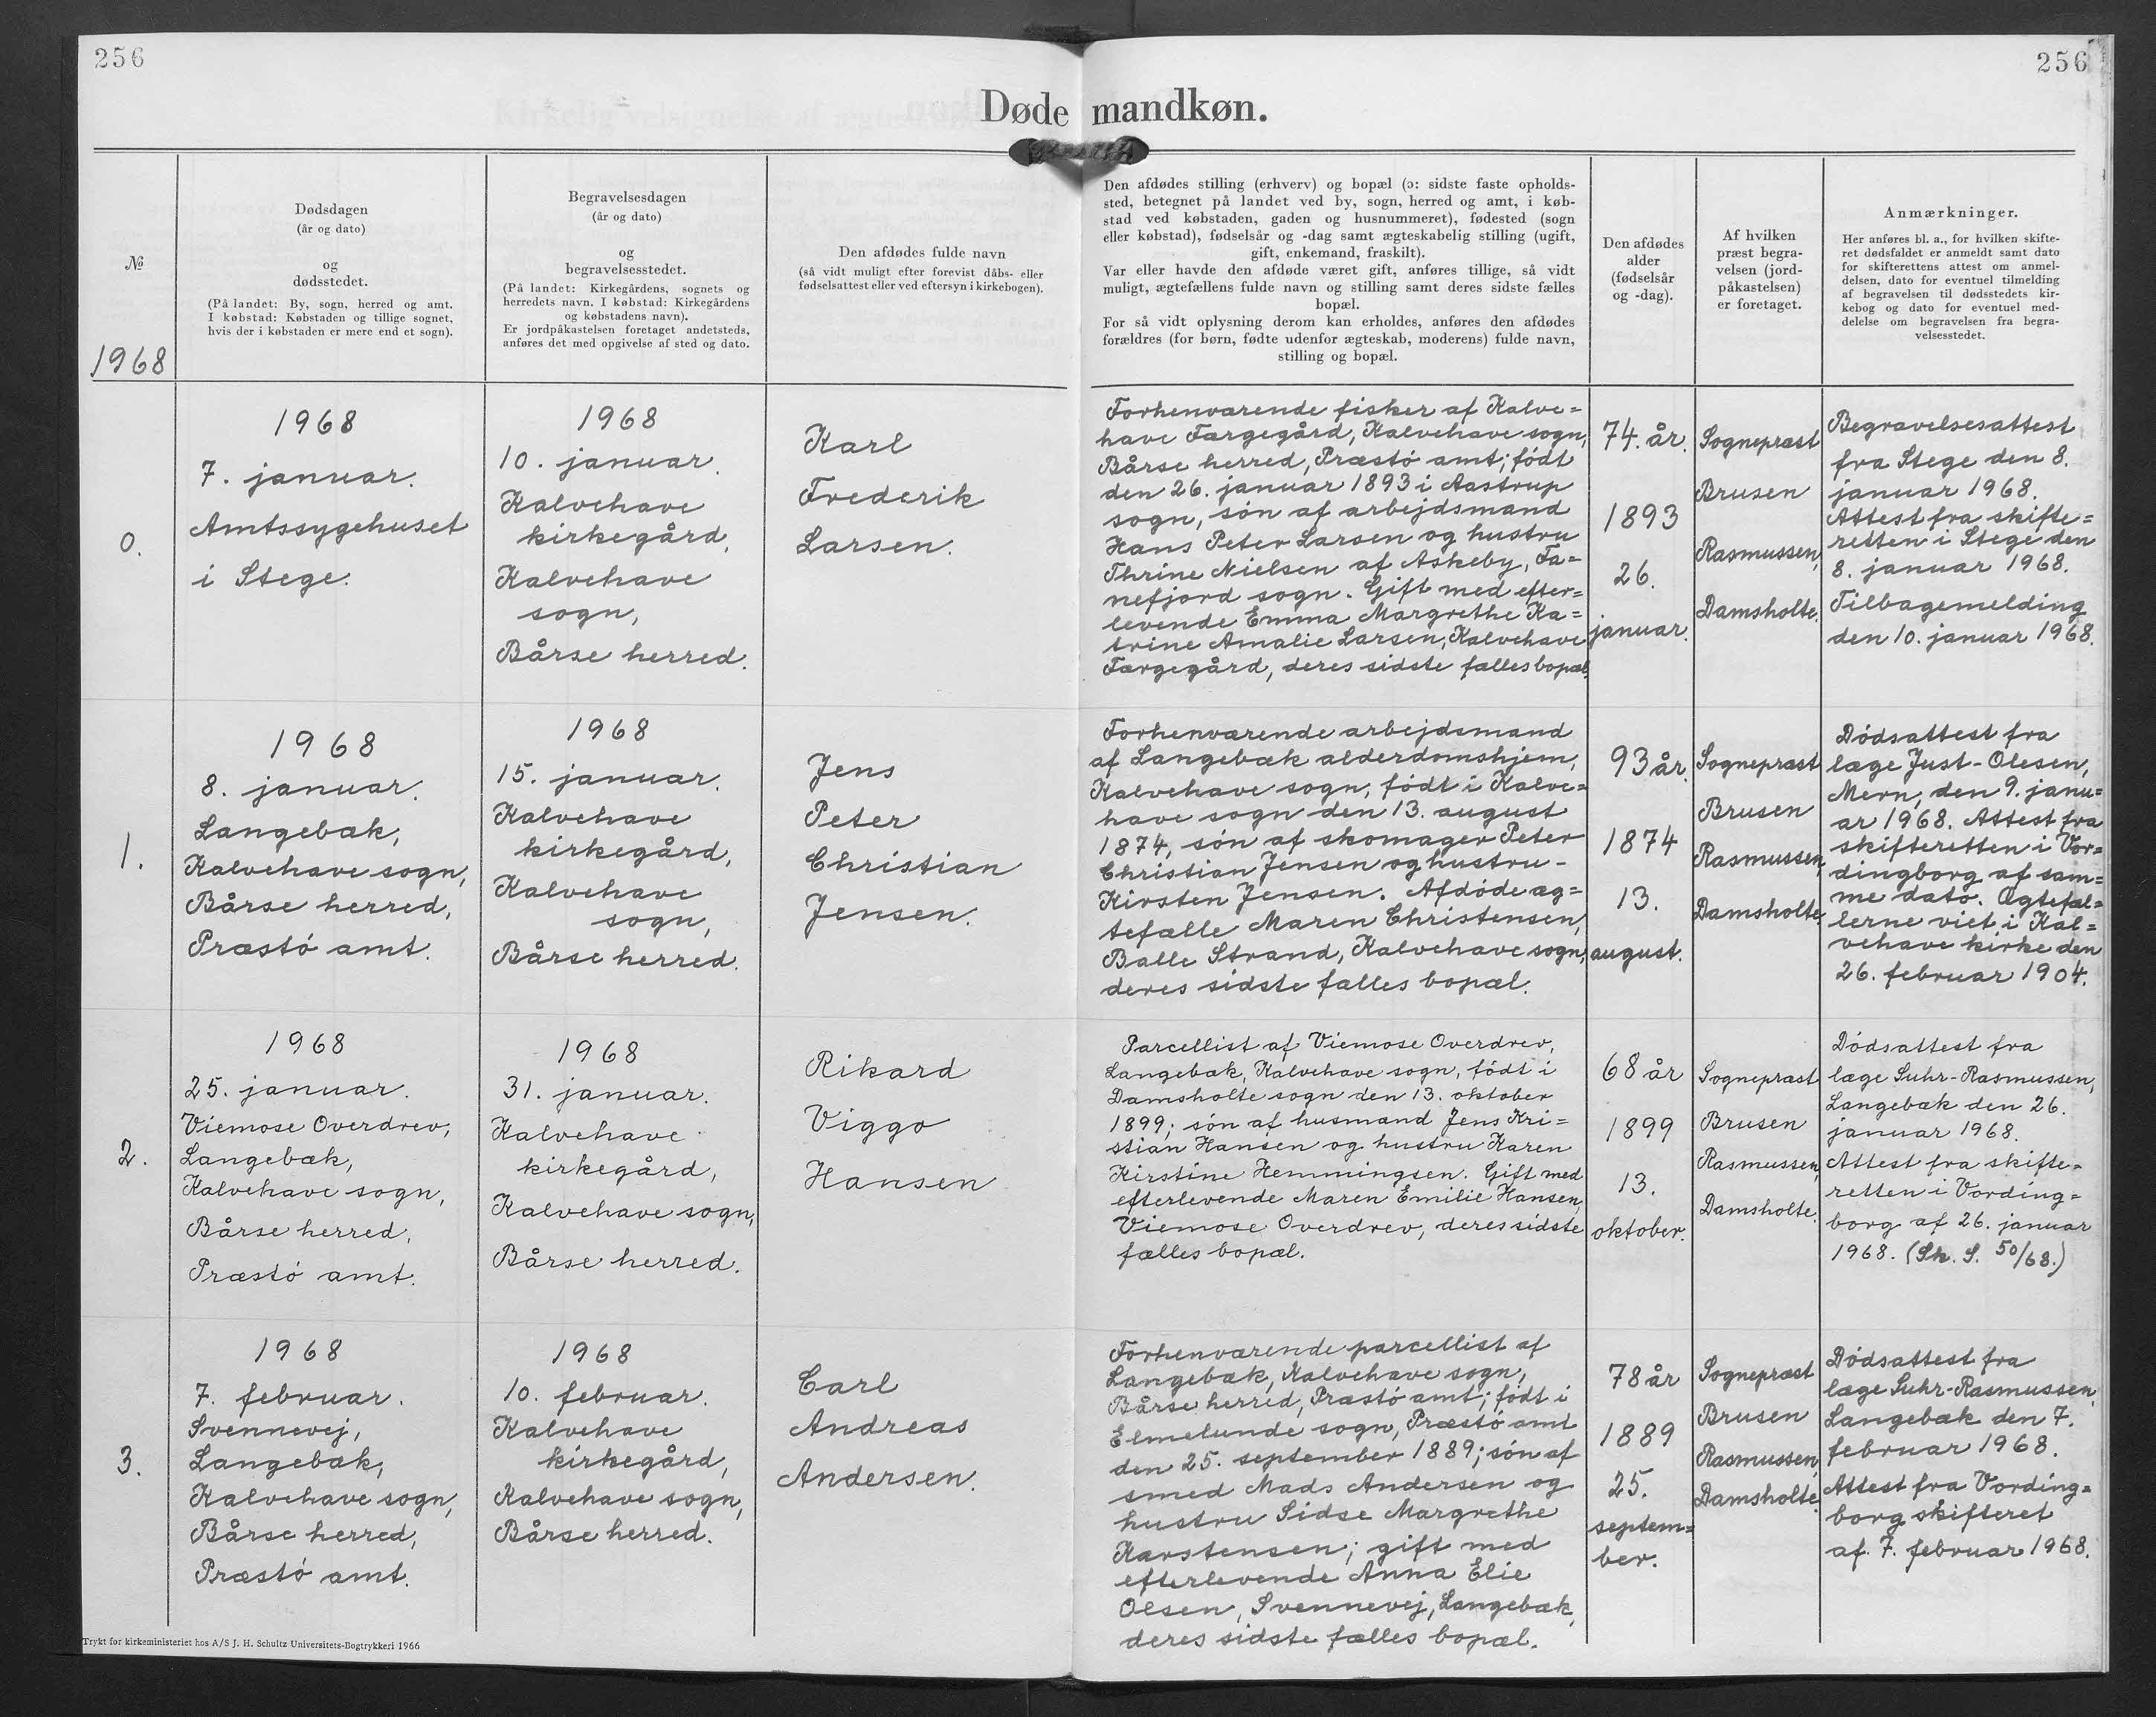 256
256
Døde mandkøn.
№
1968
Dødsdagen
(år og dato)
og
dødsstedet.
(På landet: By, sogn, herred og amt.
I købstad: Købstaden og tillige sognet,
hvis der i købstaden er mere end et sogn).
Begravelsesdagen
(år og dato)
og
begravelsesstedet.
(På landet: Kirkegårdens, sognets og
herredets navn. I købstad: Kirkegårdens
og købstadens navn).
Er jordpåkastelsen foretaget andetsteds,
anføres det med opgivelse af sted og dato.
Den afdødes fulde navn
(så vidt muligt efter forevist dåbs- eller
fødselsattest eller ved eftersyn i kirkebogen).
Den afdødes stilling (erhverv) og bopæl (ɔ: sidste faste opholds-
sted, betegnet på landet ved by, sogn, herred og amt, i køb-
stad ved købstaden, gaden og husnummeret), fødested (sogn
eller købstad), fødselsår og -dag samt ægteskabelig stilling (ugift,
gift, enkemand, fraskilt).
Var eller havde den afdøde været gift, anføres tillige, så vidt
muligt, ægtefællens fulde navn og stilling samt deres sidste fælles
bopæl.
For så vidt oplysning derom kan erholdes, anføres den afdødes
forældres (for børn, fødte udenfor ægteskab, moderens) fulde navn,
stilling og bopæl.
Den afdødes
alder
(fødselsår
og -dag).
Af hvilken
præst begra-
velsen (jord-
påkastelsen)
er foretaget.
Anmærkninger.
Her anføres bl. a., for hvilken skifte-
ret dødsfaldet er anmeldt samt dato
for skifterettens attest om anmel-
delsen, dato for eventuel tilmelding
af begravelsen til dødsstedets kir-
kebog og dato for eventuel med-
delelse om begravelsen fra begra-
velsesstedet.
0.
1968
7. januar.
Amtssygehuset
i Stege.
1968
10. januar.
Kalvehave
kirkegård,
Kalvehave
sogn,
Bårse herred.
Karl
Frederik
Larsen.
Forhenværende fisker af Kalve=
have Færgegård, Kalvehave sogn,
Bårse herred, Præstó amt; fódt
den 26. januar 1893 i Aastrup
sogn, són af arbejdsmand
Hans Peter Larsen og hustru
Thrine Nielsen af Askeby, Fa=
nefjord sogn. Gift med efter=
levende Emma Margrethe Ka=
trine Amalie Larsen, Kalvehave
Færgegård, deres sidste fælles bopæl.
74. år.
1893
26.
januar.
Sognepræst
Brusen
Rasmussen,
Damsholte.
Begravelsesattest
fra Stege den 8.
januar 1968.
Attest fra skifte=
retten i Stege den
8. januar 1968.
Tilbagemelding
den 10. januar 1968.
1.
1968
8. januar.
Langebæk,
Kalvehave sogn,
Bårse herred,
Præstó amt.
1968
15. januar.
Kalvehave
kirkegård,
Kalvehave
sogn,
Bårse herred.
Jens
Peter
Christian
Jensen.
Forhenværende arbejdsmand
af Langebæk alderdomshjem,
Kalvehave sogn; fódt i Kalve=
have sogn den 13. august
1874, són af skomager Peter
Christian Jensen og hustru -
Kirsten Jensen. Afdóde æg=
tefælle Maren Christensen,
Balle Strand, Kalvehave sogn,
deres sidste fælles bopæl.
93 år.
1874
13.
august.
Sognepræst
Brusen
Rasmussen,
Damsholte.
Dódsattest fra
læge Just-Olesen,
Mern, den 9. janu=
ar 1968. Attest fra
skifteretten i Vor=
dingborg af sam=
me dato. Ægtefæl=
lerne viet i Kal=
vehave kirke den
26. februar 1904.
2.
1968
25. januar.
Viemose Overdrev,
Langebæk,
Kalvehave sogn,
Bårse herred,
Præstó amt.
1968
31. januar.
Kalvehave
kirkegård,
Kalvehave sogn,
Bårse herred.
Rikard
Viggo
Hansen
Parcellist af Viemose Overdrev,
Langebæk, Kalvehave sogn, fódt i
Damsholte sogn den 13. oktober
1899; són af husmand Jens Kri=
stian Hansen og hustru Karen
Kirstine Hemmingsen. Gift med
efterlevende Maren Emilie Hansen,
Viemose Overdrev, deres sidste
fælles bopæl.
68 år
1899
13.
oktober.
Sognepræst
Brusen
Rasmussen,
Damsholte.
Dódsattest fra
læge Suhr-Rasmussen,
Langebæk den 26.
januar 1968.
Attest fra skifte=
retten i Vording=
borg af 26. januar
1968. (Sk. S. 50/68.)
3.
1968
7. februar.
Svennevej,
Langebæk,
Kalvehave sogn,
Bårse herred,
Præstó amt.
1968
10. februar.
Kalvehave
kirkegård,
Kalvehave sogn,
Bårse herred.
Carl
Andreas
Andersen.
Forhenværende parcellist af
Langebæk, Kalvehave sogn,
Bårse herred, Præstó amt; fódt i
Elmelunde sogn, Præstó amt
den 25. september 1889; són af
smed Mads Andersen og
hustru Sidse Margrethe
Karstensen; gift med
efterlevende Anna Elie
Olsen, Svennevej, Langebæk,
deres sidste fælles bopæl.
78 år
1889
25.
septem=
ber.
Sognepræst
Brusen
Rasmussen,
Damsholte.
Dódsattest fra
læge Suhr-Rasmussen,
Langebæk den 7.
februar 1968.
Attest fra Vording=
borg skifteret
af 7. februar 1968.
Trykt for kirkeministeriet hos A/S J. H. Schultz Universitets-Bogtrykkeri 1966